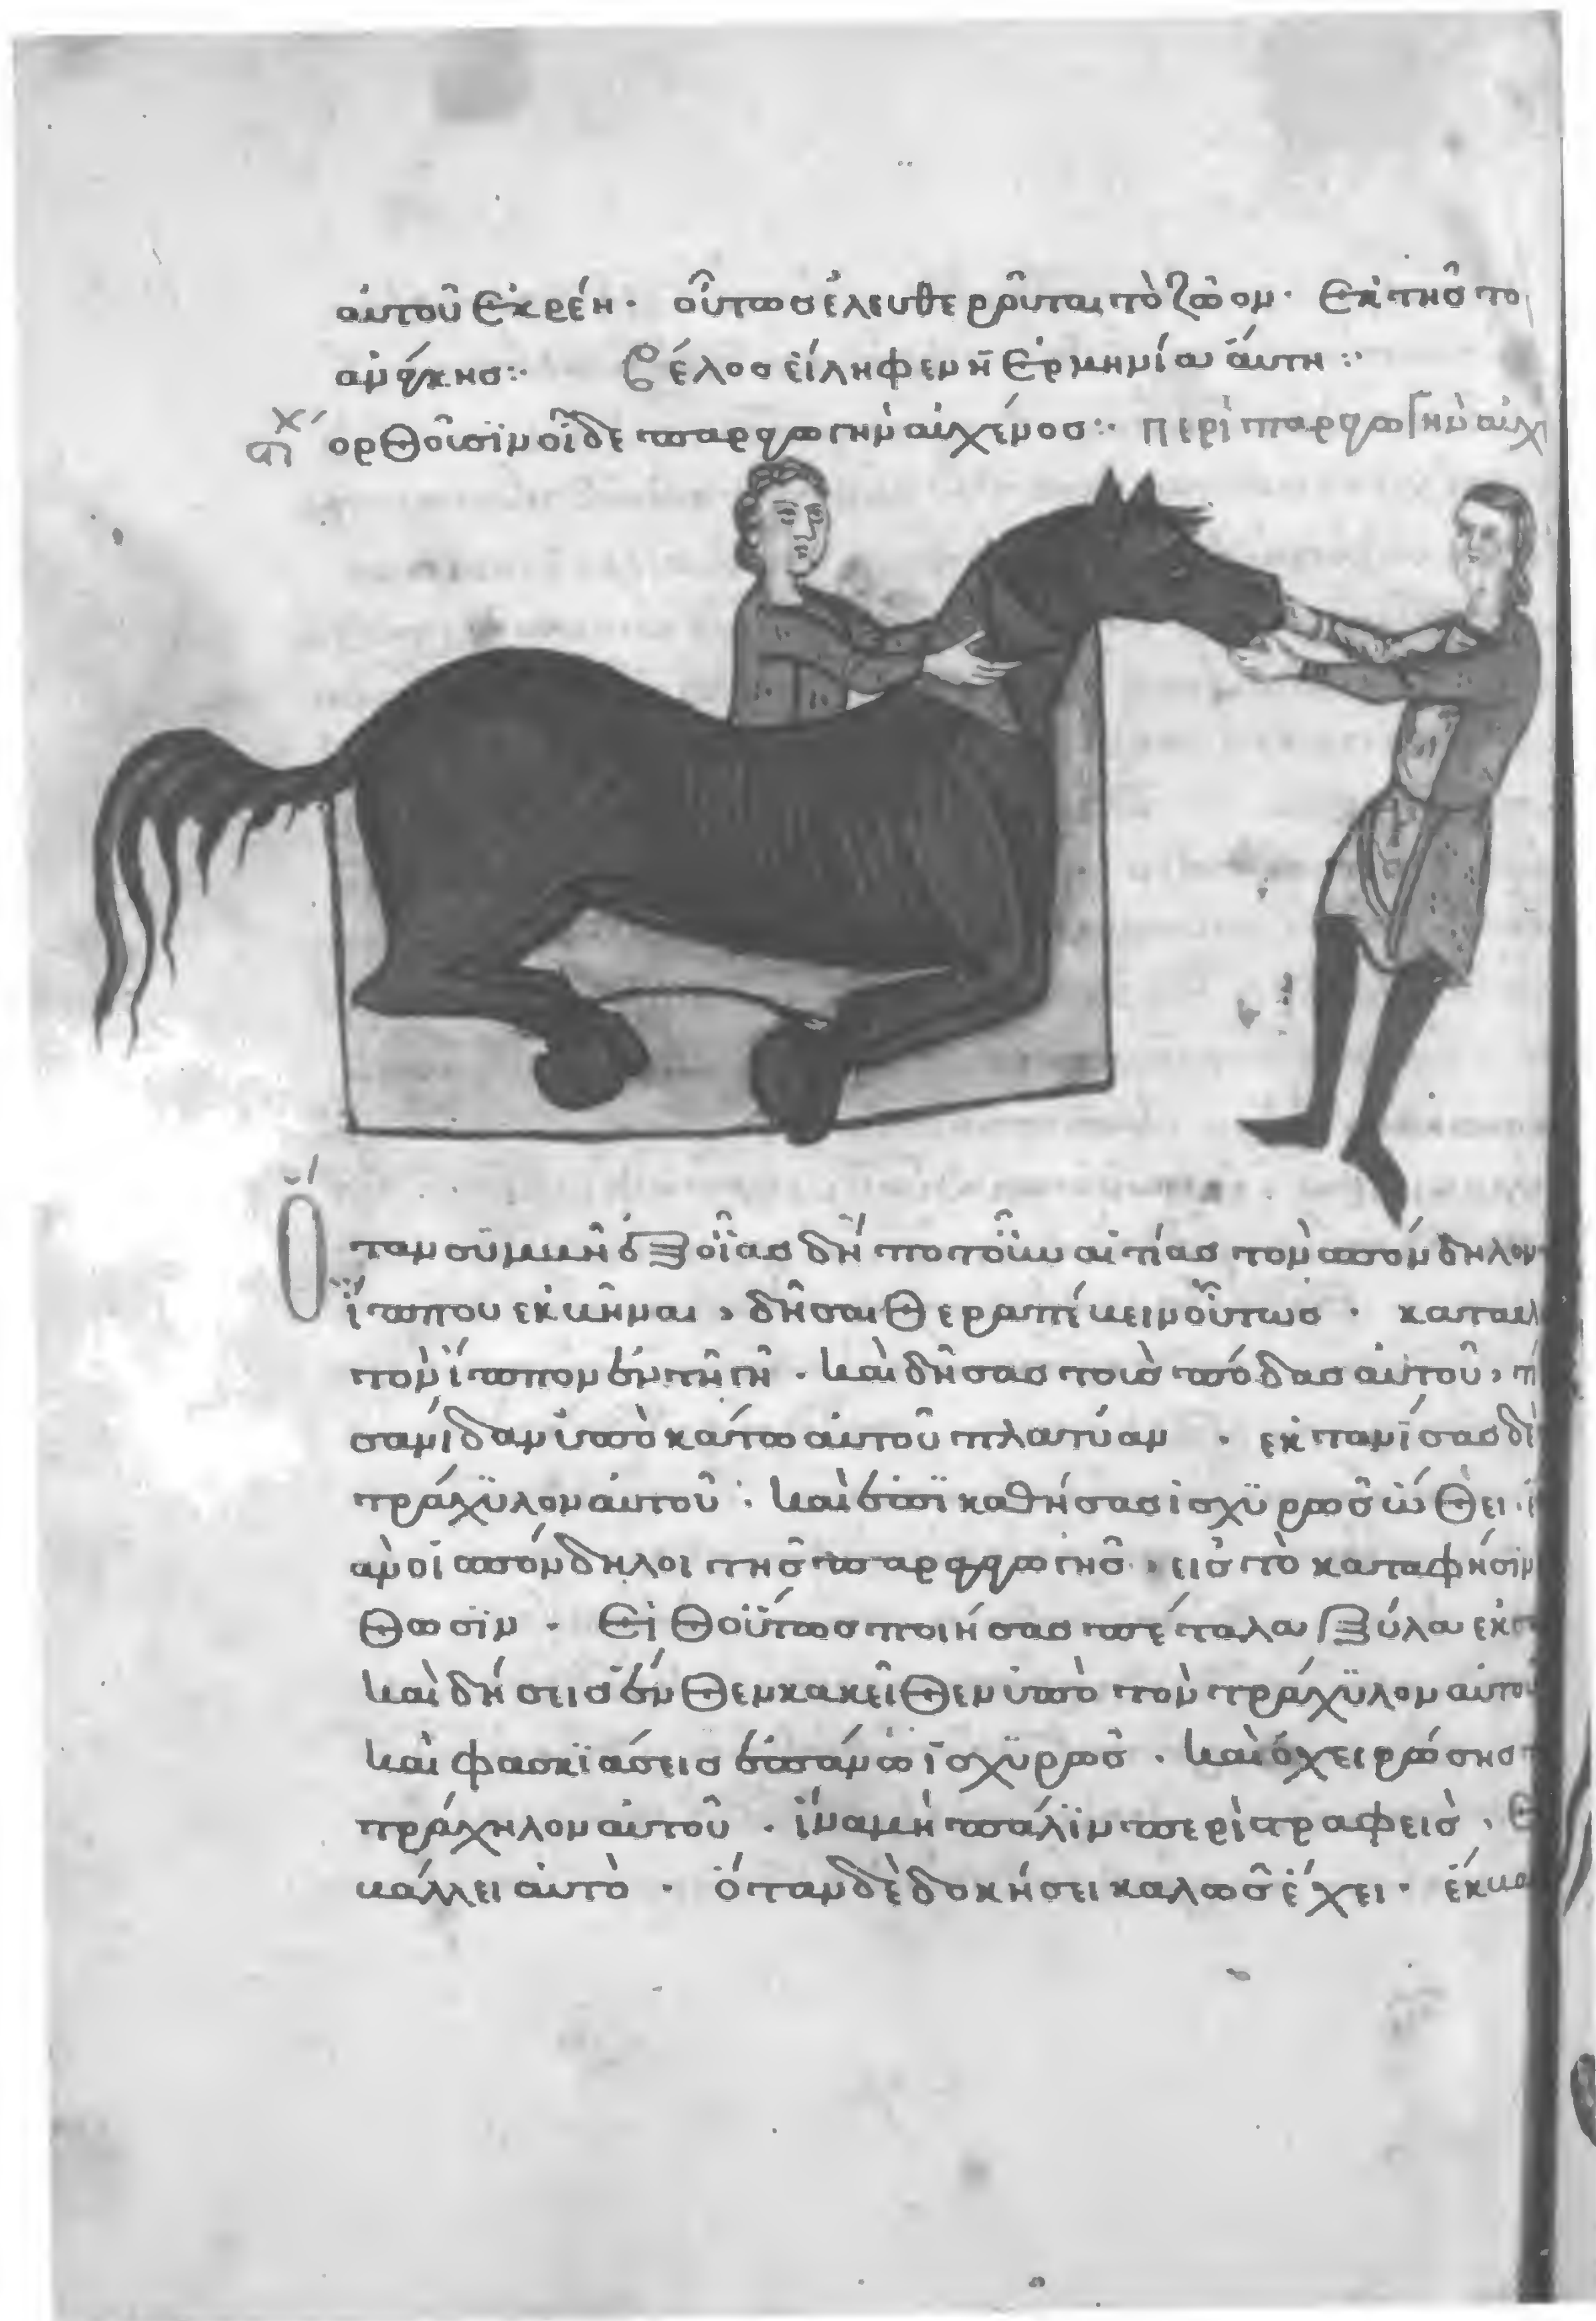 αὐτοῦ ἐκρέη · οὕτωσ ἐλευθεροῦται τὸ ζῶον · ἐκ τῆσ το
ἀνάγκησ : τέλοσ εἴληφεν ἡ ἑρμηνία αὕτη :
ὀρθοῦσιν οἵδε παραγωγὴν αὐχένοσ : περὶ παραγωγὴν αὐχ
Ὅταν συμβῆ ἐξ οἵασ δή ποτ οὖν αἰτίασ τὸν σπόνδηλον
ἵππου ἐκβῆναι , δῆ σαι θεραπεύειν οὕτωσ · κατα
τὸν ἵππον ἐν τῆ γῆ · καὶ δήσασ τοὺσ πόδασ αὐτοῦ ,
σανίδαν ὑπὸ κάτω αὐτοῦ πλατύαν · ἐκτανίσασ
τράχυλον αὐτοῦ · καὶ ἐπικαθήσασ ἰσχυρῶσ ὤθει ·
ἀν οἱ σπόνδηλοι τῆσ παραγωγῆσ , εἰσ τὸ
θωσιν · Εἶθ οὕτωσ ποιήσασ πέταλα ξύλα
καὶ δήσεισ ἔνθεν κακεῖθεν ὑπὸ τὸν τράχυλον αὐτοῦ
καὶ φασκιάσεισ ἐπάνω ἰσχυρῶσ · καὶ ὀχειρώσησ
τράχηλον αὐτοῦ · ἵνα μὴ πάλιν περιστραφεὶσ ·
βάλλει αὐτὸ · ὅταν δὲ δοκήσει καλῶσ ἔχει ·